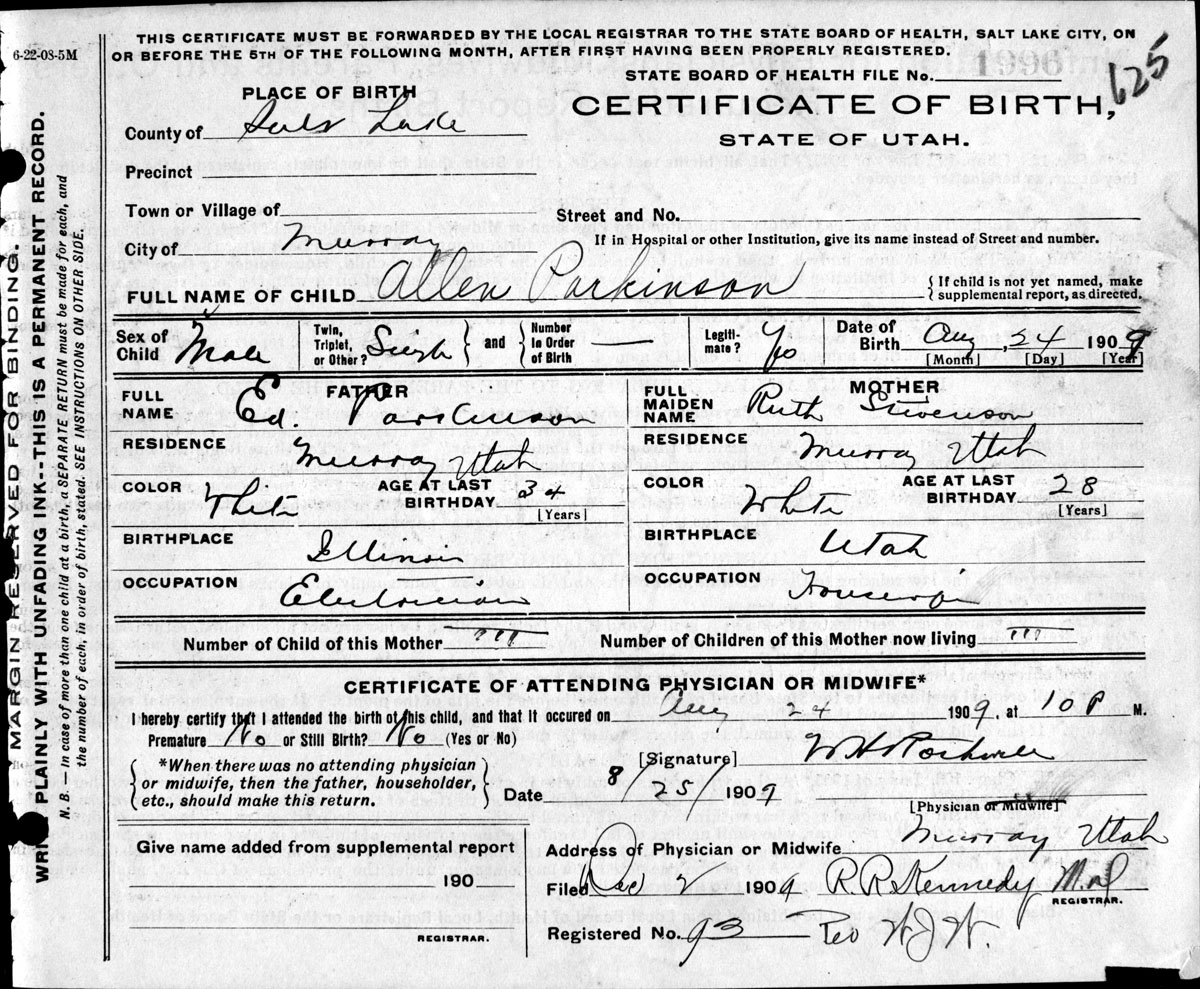 6-22-08-5M
THIS CERTIFICATE MUST BE FORWARDED BY THE LOCAL REGISTRAR TO THE STATE BOARD OF HEALTH, SALT LAKE CITY, ON
OR BEFORE THE 5TH OF THE FOLLOWING MONTH, AFTER FIRST HAVING BEEN PROPERLY REGISTERED.
STATE BOARD OF HEALTH FILE No. 1996 625
PLACE OF BIRTH
CERTIFICATE OF BIRTH,
STATE OF UTAH.
County of Salt Lake
Precinct
Town or Village of
Street and No.
City of Murray
If in Hospital or other Institution, give its name instead of Street and number.
FULL NAME OF CHILD Allen Parkinson
{ If child is not yet named, make
supplemental report, as directed.
Sex of Child Male
Twin, Triplet, or Other? Single } and { Number in Order of Birth —
Legiti-mate? Yes
Date of Birth Aug, 24 1909
[Month] [Day] [Year]
FATHER
FULL NAME Ed. Parkinson
RESIDENCE Murray Utah
COLOR White AGE AT LAST BIRTHDAY 34
[Years]
BIRTHPLACE Illinois
OCCUPATION Electrician
MOTHER
FULL MAIDEN NAME Ruth Stevenson
RESIDENCE Murray Utah
COLOR White AGE AT LAST BIRTHDAY 28
[Years]
BIRTHPLACE Utah
OCCUPATION Housewife
Number of Child of this Mother III Number of Children of this Mother now living III
CERTIFICATE OF ATTENDING PHYSICIAN OR MIDWIFE*
I hereby certify that I attended the birth of this child, and that it occured on Aug 24 1909, at 10 P M.
Premature No or Still Birth? No (Yes or No)
{ *When there was no attending physician
or midwife, then the father, householder,
etc., should make this return. }
[Signature] W H
Date 8/25/ 1909
[Physician or Midwife]
Address of Physician or Midwife Murray Utah
Filed 2 1909 R. R. Kennedy M.D
REGISTRAR.
Registered No. 93 W. J. W.
Give name added from supplemental report
190
REGISTRAR.
MARGIN RESERVED FOR BINDING.
WRITE PLAINLY WITH UNFADING INK--THIS IS A PERMANENT RECORD.
N. B. — In case of more than one child at a birth, a SEPARATE RETURN must be made for each, and
the number of each, in order of birth, stated. SEE INSTRUCTIONS ON OTHER SIDE.